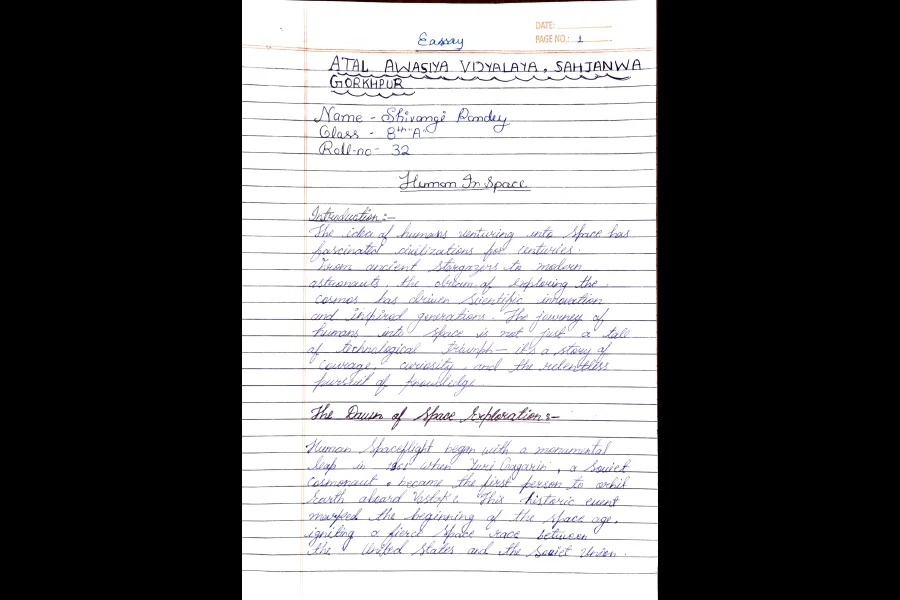 DATE:
PAGE NO.: 1
Eassay
ATAL AWASIYA VIDYALAYA, SAHJANWA
GORKHPUR
Name - Shivangi Pandey
Class - 8th "A"
Roll-no - 32
Human In Space
Introduction :-
The idea of humans venturing into space has
fascinated civilizations for centuries.
From ancient stargazers to modern
astronauts, the dream of exploring the
cosmos has driven scientific innovation
and inspired generations. The journey of
humans into space is not just a tall
of technological triumph — it's a story of
courage, curiosity, and the relentless
pursuit of knowledge
The Dawn of Space Explorations:-
Human Spaceflight began with a monumental
leap in 1961 when Yuri Gagarin, a Soviet
cosmonaut, became the first person to orbit
Earth aboard This historic event
marked the beginning of the space age,
igniting a fierce space race between
the United States and the Soviet Union.